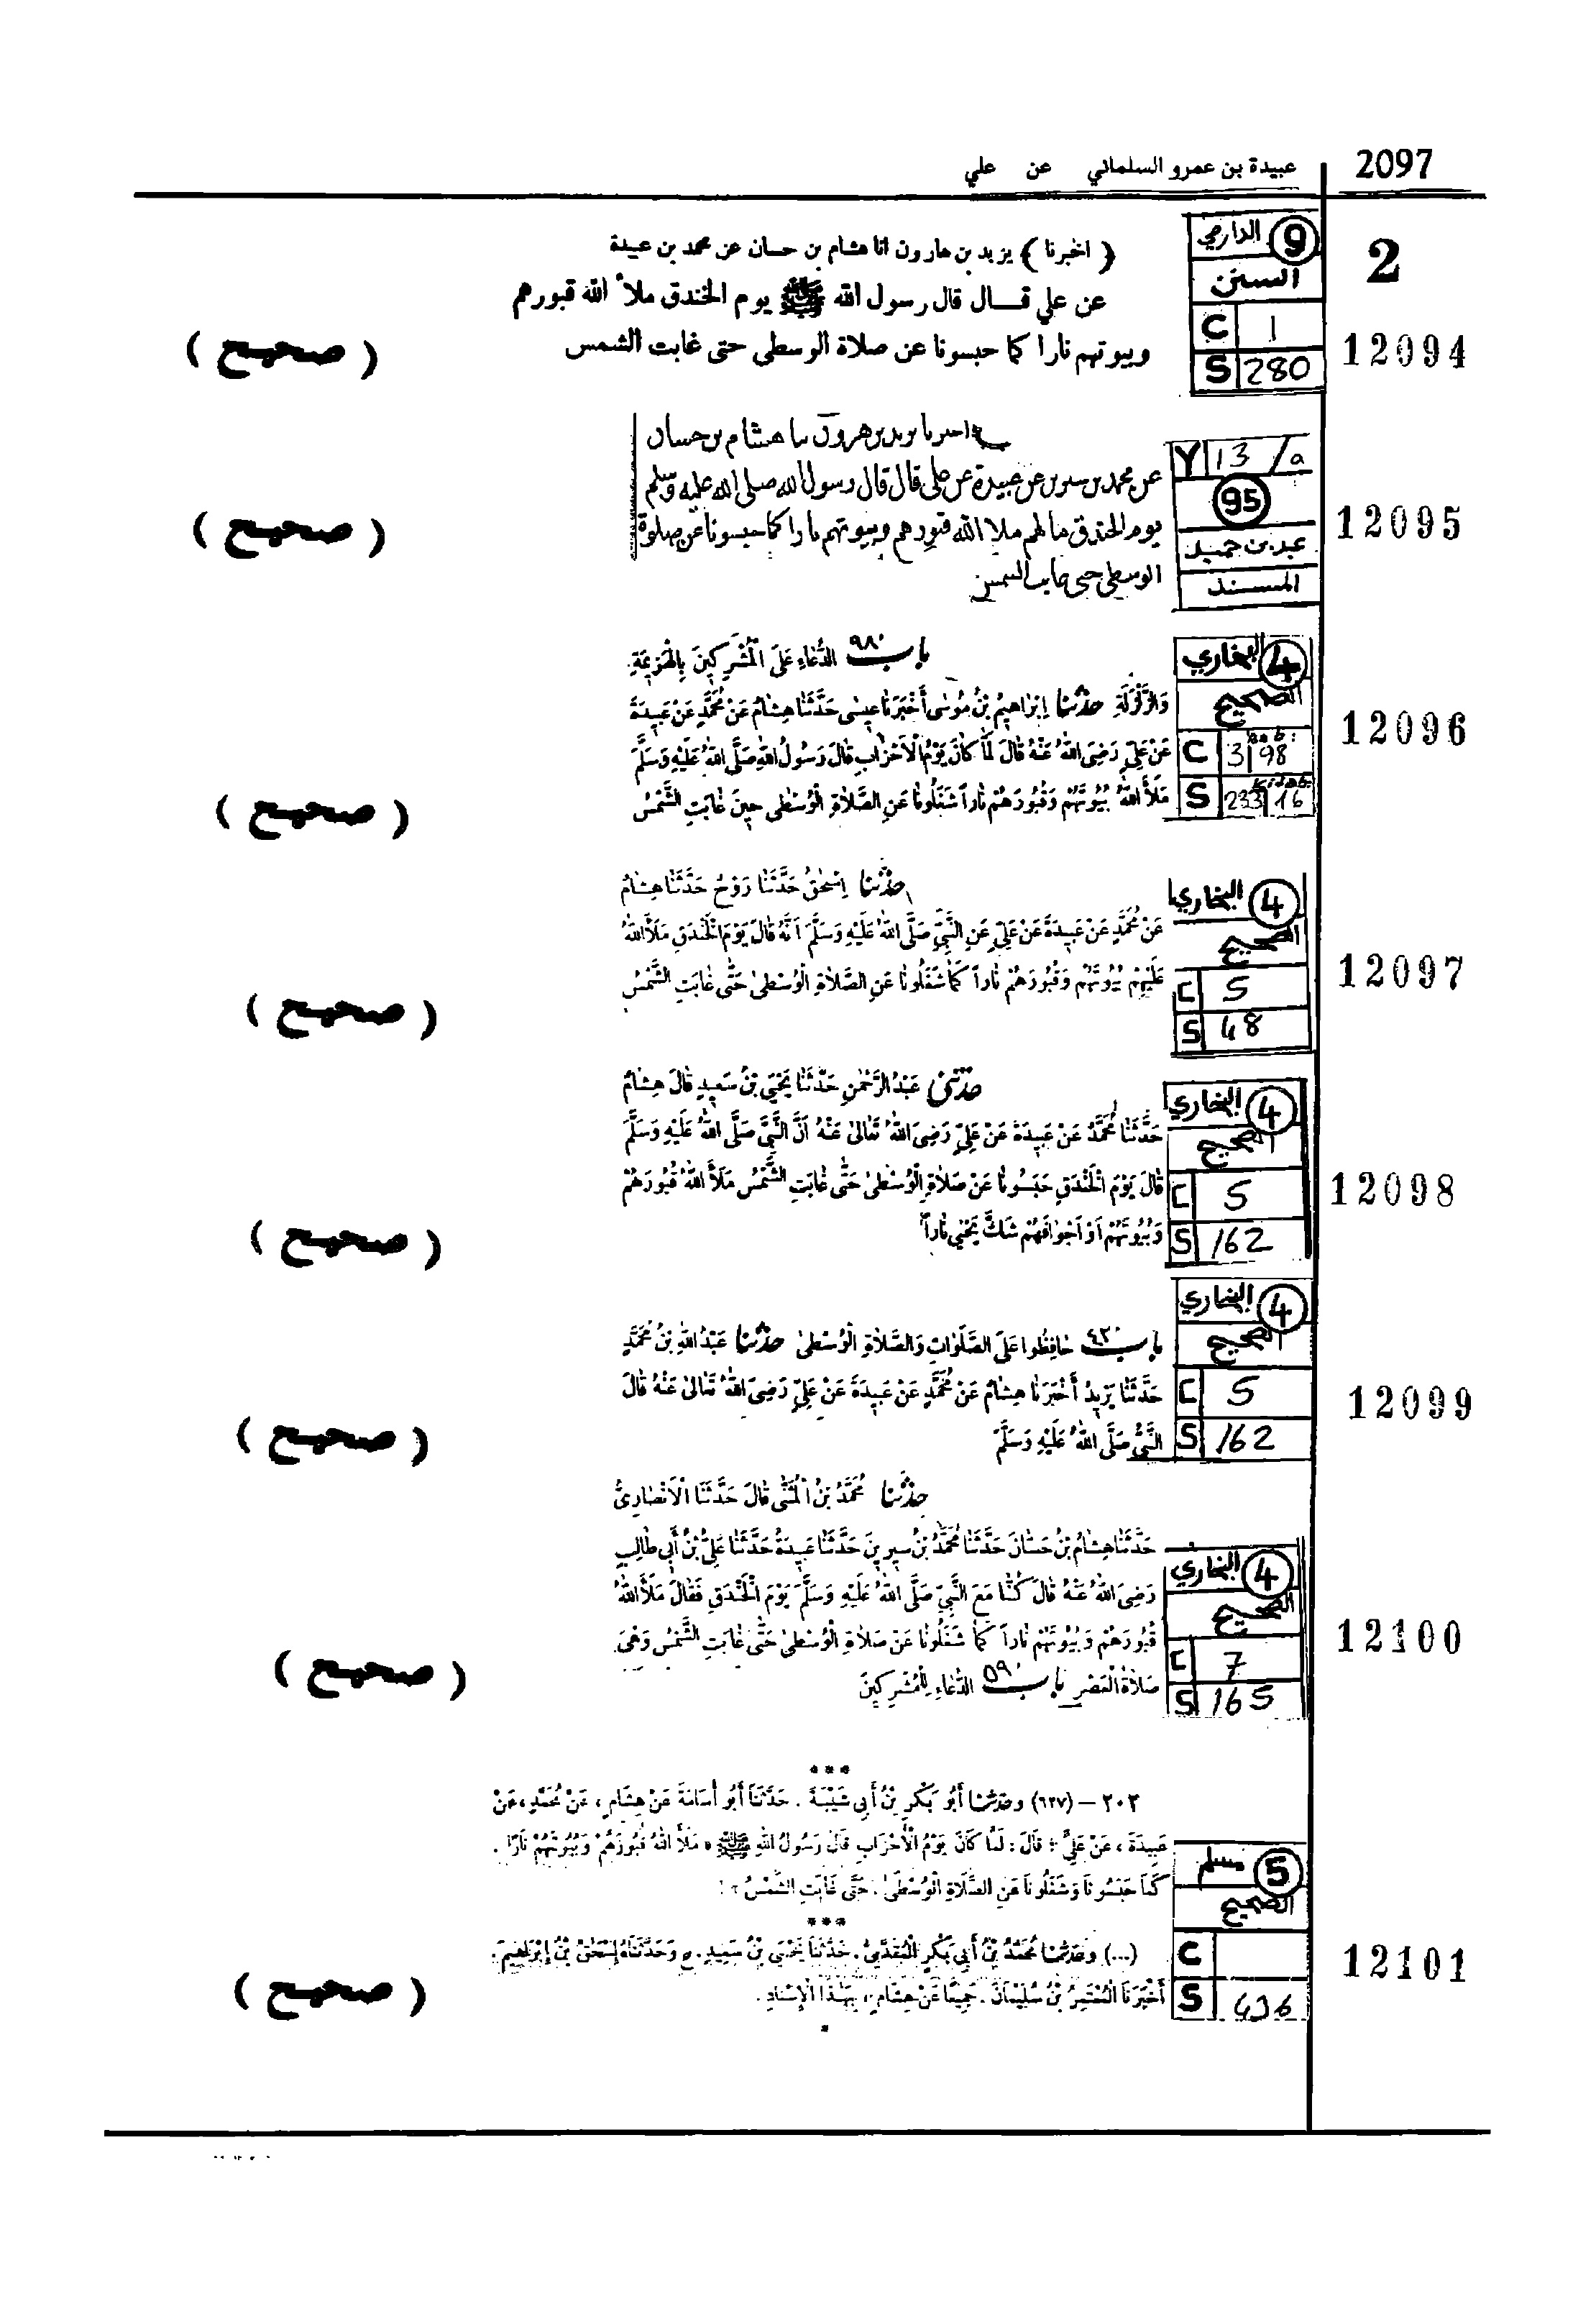 2097
عبيدة بن عمرو السلماني عن علي
2
9 الدارمي
السنن
C 1
S 280
12094
( اخبرنا ) يزيد بن هارون انا هشام بن حسان عن محمد بن عبيدة
عن علي قال قال رسول الله ﷺ يوم الخندق ملأ الله قبورهم
وبيوتهم نارا كما حبسونا عن صلاة الوسطى حتى غابت الشمس
( صحيح )
Y 13/a
95
عبد بن حميد
المسند
12095
اخبرنا يزيد بن هرون نا هشام بن حسان
عن محمد بن سيرين عن عبيدة عن على قال قال رسول الله صلى الله عليه وسلم
يوم الخندق مالهم ملا الله قبورهم وبيوتهم نارا كما حبسونا عن صلوة
الوسطى حتى غابت الشمس
( صحيح )
4 البخاري
الصحيح
C 3 98 Bab:
S 233 16 Kitab:
12096
باب ٩٨ الدُّعَاءِ عَلَى الْمُشْرِكِينَ بِالْهَزِيمَةِ
وَالزَّلْزَلَةِ حدثنا إِبْرَاهِيمُ بْنُ مُوسَى أَخْبَرَنَا عِيسَى حَدَّثَنَا هِشَامٌ عَنْ مُحَمَّدٍ عَنْ عَبِيدَةَ
عَنْ عَلِيٍّ رَضِيَ اللهُ عَنْهُ قَالَ لَمَّا كَانَ يَوْمُ الْأَحْزَابِ قَالَ رَسُولُ اللهِ صَلَّى اللهُ عَلَيْهِ وَسَلَّمَ
مَلَأَ اللهُ بُيُوتَهُمْ وَقُبُورَهُمْ نَاراً شَغَلُونَا عَنِ الصَّلَاةِ الْوُسْطَى حِينَ غَابَتِ الشَّمْسُ
( صحيح )
4 البخاري
الصحيح
C 5
S 48
12097
حدثنا إِسْحٰقُ حَدَّثَنَا رَوْحٌ حَدَّثَنَا هِشَامٌ
عَنْ مُحَمَّدٍ عَنْ عَبِيدَةَ عَنْ عَلِيٍّ عَنِ النَّبِيِّ صَلَّى اللهُ عَلَيْهِ وَسَلَّمَ أَنَّهُ قَالَ يَوْمَ الْخَنْدَقِ مَلَأَ اللهُ
عَلَيْهِمْ بُيُوتَهُمْ وَقُبُورَهُمْ نَاراً كَمَا شَغَلُونَا عَنِ الصَّلَاةِ الْوُسْطَى حَتَّى غَابَتِ الشَّمْسُ
( صحيح )
4 البخاري
الصحيح
C 5
S 162
12098
حدثني عَبْدُ الرَّحْمٰنِ حَدَّثَنَا يَحْيَى بْنُ سَعِيدٍ قَالَ هِشَامٌ
حَدَّثَنَا مُحَمَّدٌ عَنْ عَبِيدَةَ عَنْ عَلِيٍّ رَضِيَ اللهُ تَعَالَى عَنْهُ أَنَّ النَّبِيَّ صَلَّى اللهُ عَلَيْهِ وَسَلَّمَ
قَالَ يَوْمَ الْخَنْدَقِ حَبَسُونَا عَنْ صَلَاةِ الْوُسْطَى حَتَّى غَابَتِ الشَّمْسُ مَلَأَ اللهُ قُبُورَهُمْ
وَبُيُوتَهُمْ أَوْ أَجْوَافَهُمْ شَكَّ يَحْيَى نَاراً
( صحيح )
4 البخاري
الصحيح
C 5
S 162
12099
باب ٤٢ حَافِظُوا عَلَى الصَّلَوَاتِ وَالصَّلَاةِ الْوُسْطَى حدثنا عَبْدُ اللهِ بْنُ مُحَمَّدٍ
حَدَّثَنَا يَزِيدُ أَخْبَرَنَا هِشَامٌ عَنْ مُحَمَّدٍ عَنْ عَبِيدَةَ عَنْ عَلِيٍّ رَضِيَ اللهُ تَعَالَى عَنْهُ قَالَ
النَّبِيُّ صَلَّى اللهُ عَلَيْهِ وَسَلَّمَ
( صحيح )
4 البخاري
الصحيح
C 7
S 165
12100
حدثنا مُحَمَّدُ بْنُ الْمُثَنَّى قَالَ حَدَّثَنَا الْأَنْصَارِيُّ
حَدَّثَنَا هِشَامُ بْنُ حَسَّانَ حَدَّثَنَا مُحَمَّدُ بْنُ سِيرِينَ حَدَّثَنَا عَبِيدَةُ حَدَّثَنَا عَلِيُّ بْنُ أَبِي طَالِبٍ
رَضِيَ اللهُ عَنْهُ قَالَ كُنَّا مَعَ النَّبِيِّ صَلَّى اللهُ عَلَيْهِ وَسَلَّمَ يَوْمَ الْخَنْدَقِ فَقَالَ مَلَأَ اللهُ
قُبُورَهُمْ وَبُيُوتَهُمْ نَاراً كَمَا شَغَلُونَا عَنْ صَلَاةِ الْوُسْطَى حَتَّى غَابَتِ الشَّمْسُ وَهْيَ
صَلَاةُ الْعَصْرِ باب ٥٩ الدُّعَاءِ لِلْمُشْرِكِينَ
( صحيح )
***
٢٠٢ – (٦٢٧) وحدثنا أَبُو بَكْرِ بْنُ أَبِي شَيْبَةَ . حَدَّثَنَا أَبُو أُسَامَةَ عَنْ هِشَامٍ ، عَنْ مُحَمَّدٍ ، عَنْ
عَبِيدَةَ ، عَنْ عَلِيٍّ ؛ قَالَ : لَمَّا كَانَ يَوْمُ الْأَحْزَابِ قَالَ رَسُولُ اللهِ ﷺ « مَلَأَ اللهُ قُبُورَهُمْ وَبُيُوتَهُمْ نَارًا .
كَمَا حَبَسُونَا وَشَغَلُونَا عَنِ الصَّلَاةِ الْوُسْطَى . حَتَّى غَابَتِ الشَّمْسُ » .
***
5 مسلم
الصحيح
C
S 436
12101
(...) وحدثنا مُحَمَّدُ بْنُ أَبِي بَكْرٍ الْمُقَدَّمِيُّ . حَدَّثَنَا يَحْيَى بْنُ سَعِيدٍ . ح وَحَدَّثَنَاهُ إِسْحَقُ بْنُ إِبْرَاهِيمَ .
أَخْبَرَنَا الْمُعْتَمِرُ بْنُ سُلَيْمَانَ . جَمِيعًا عَنْ هِشَامٍ ، بِهَذَا الْإِسْنَادِ .
( صحيح )